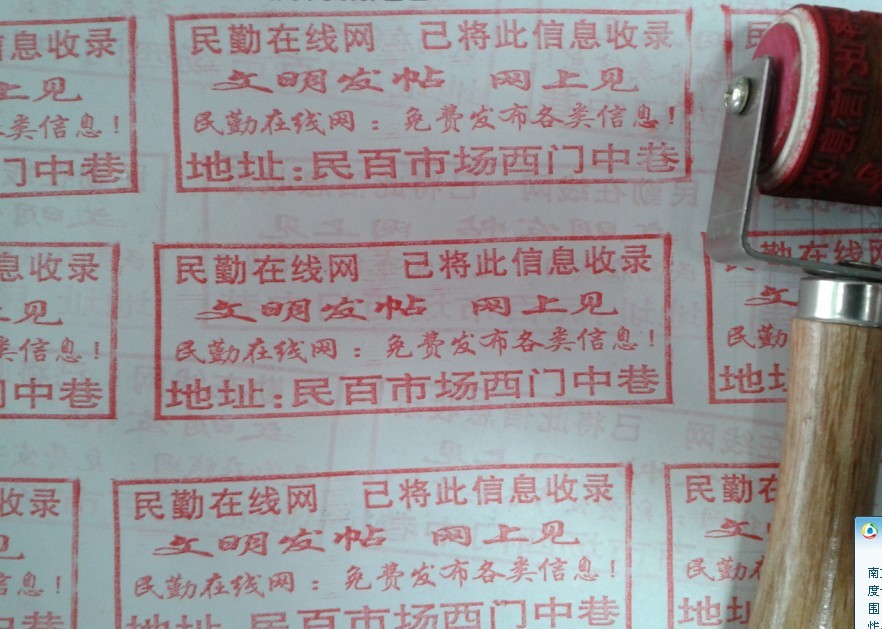 息收录
上见
类信息！
门中巷
民勤在线网 已将此信息收录
文明发帖 网上见
民勤在线网：免费发布各类信息！
地址:民百市场西门中巷
息收录
上见
类信息！
门中巷
民勤在线网 已将此信息收录
文明发帖 网上见
民勤在线网：免费发布各类信息！
地址:民百市场西门中巷
民勤在
文
民勤
地址
收录
见
信息！
中巷
民勤在线网 已将此信息收录
文明发帖 网上见
民勤在线网：免费发布各类信息！
地址:民百市场西门中巷
民勤在
文明
民勤在
地址
南
度
围
性